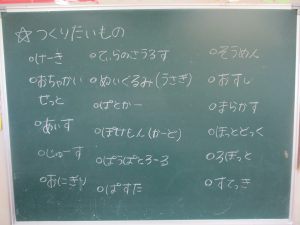 ☆つくりたいもの
○けーき
○おちゃかい
せっと
○あいす
○じゅーす
○おにぎり
○てぃらのさうるす
○ぬいぐるみ(うさぎ)
○ぱとかー
○ぽけもん(かーど)
○ぱうぱとろーる
○ぱすた
○そうめん
○おすし
○まらかす
○ほっとどっく
○ろぼっと
○すてっき